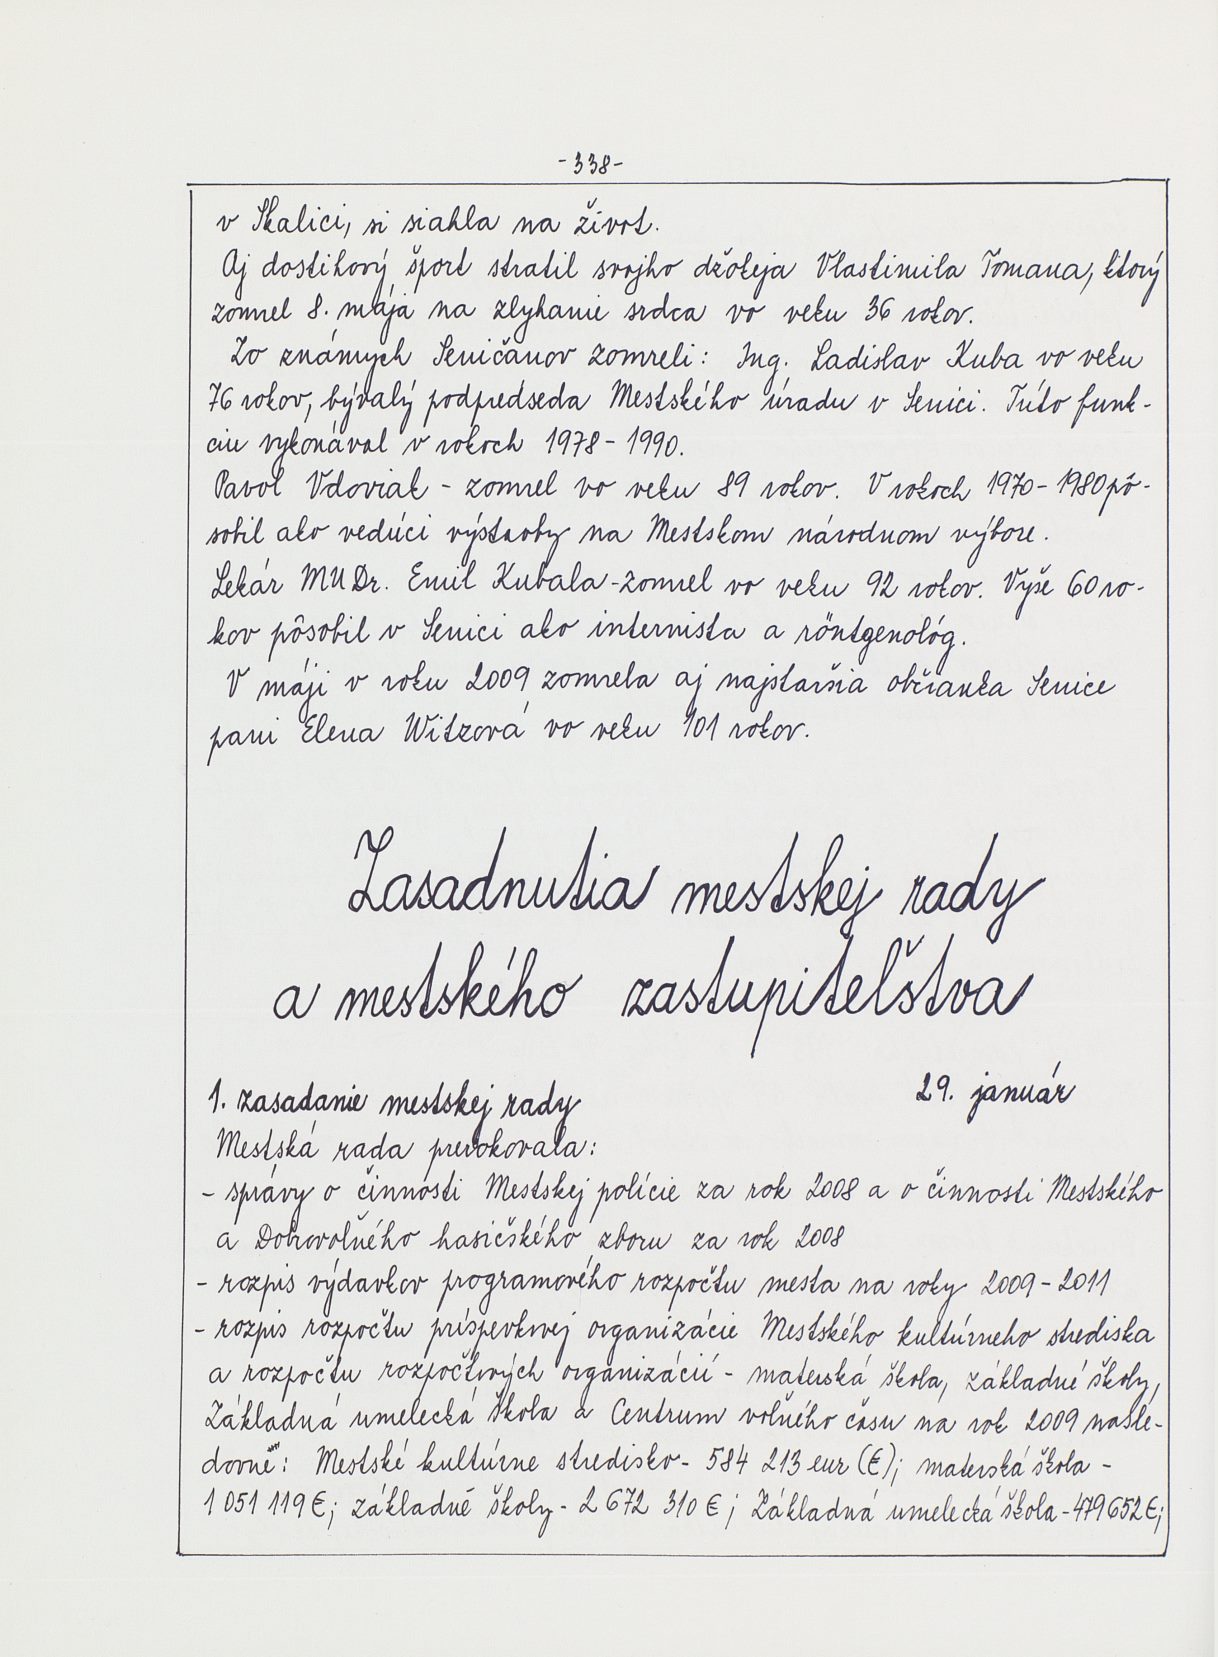 -338-
v Skalici, si siahla na život.
Aj dostihový šport stratil svojho džokeja Vlastimila Tomana, ktorý
zomrel 8. mája na zlyhanie srdca vo veku 36 rokov.
Zo známych Seničanov zomreli: Ing. Ladislav Kuba vo veku
76 rokov, bývalý podpredseda Mestského úradu v Senici. Túto funk-
ciu vykonával v rokoch 1978-1990.
Pavol Vdoviak - zomrel vo veku 89 rokov. V rokoch 1970-1980 pô-
sobil ako vedúci výstavby na Mestskom národnom výbore.
Lekár MUDr. Emil Kubala - zomrel vo veku 92 rokov. Vyše 60 ro-
kov pôsobil v Senici ako internista a röntgenológ.
V máji v roku 2009 zomrela aj najstaršia občianka Senice
pani Elena Witzová vo veku 101 rokov.
Zasadnutia mestskej rady
a mestského zastupiteľstva
1. zasadanie mestskej rady 29. január
Mestská rada prerokovala:
- správy o činnosti Mestskej polície za rok 2008 a o činnosti Mestského
a Dobrovoľného hasičského zboru za rok 2008
- rozpis výdavkov programového rozpočtu mesta na roky 2009-2011
- rozpis rozpočtu príspevkovej organizácie Mestského kultúrneho strediska
a rozpočtu rozpočtových organizácií - materská škola, základné školy,
Základná umelecká škola a Centrum voľného času na rok 2009 nasle-
dovne: Mestské kultúrne stredisko - 584 213 eur (€); materská škola -
1 051 119 €; základné školy - 2 672 310 €; Základná umelecká škola - 479 652 €;